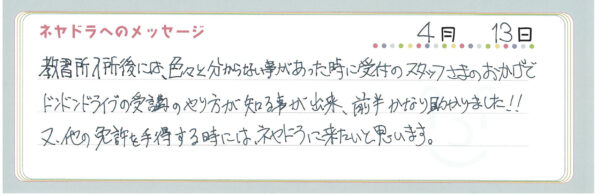 ネヤドラへのメッセージ
4月 13日
教習所入所後には、色々と分からない事があった時に受付のスタッフさまのおかげで
ドンドンドライブの受講のやり方が知る事が出来、前半かなり助かりました!!
又、他の免許を手得する時には、ネヤドラに来たいと思います。